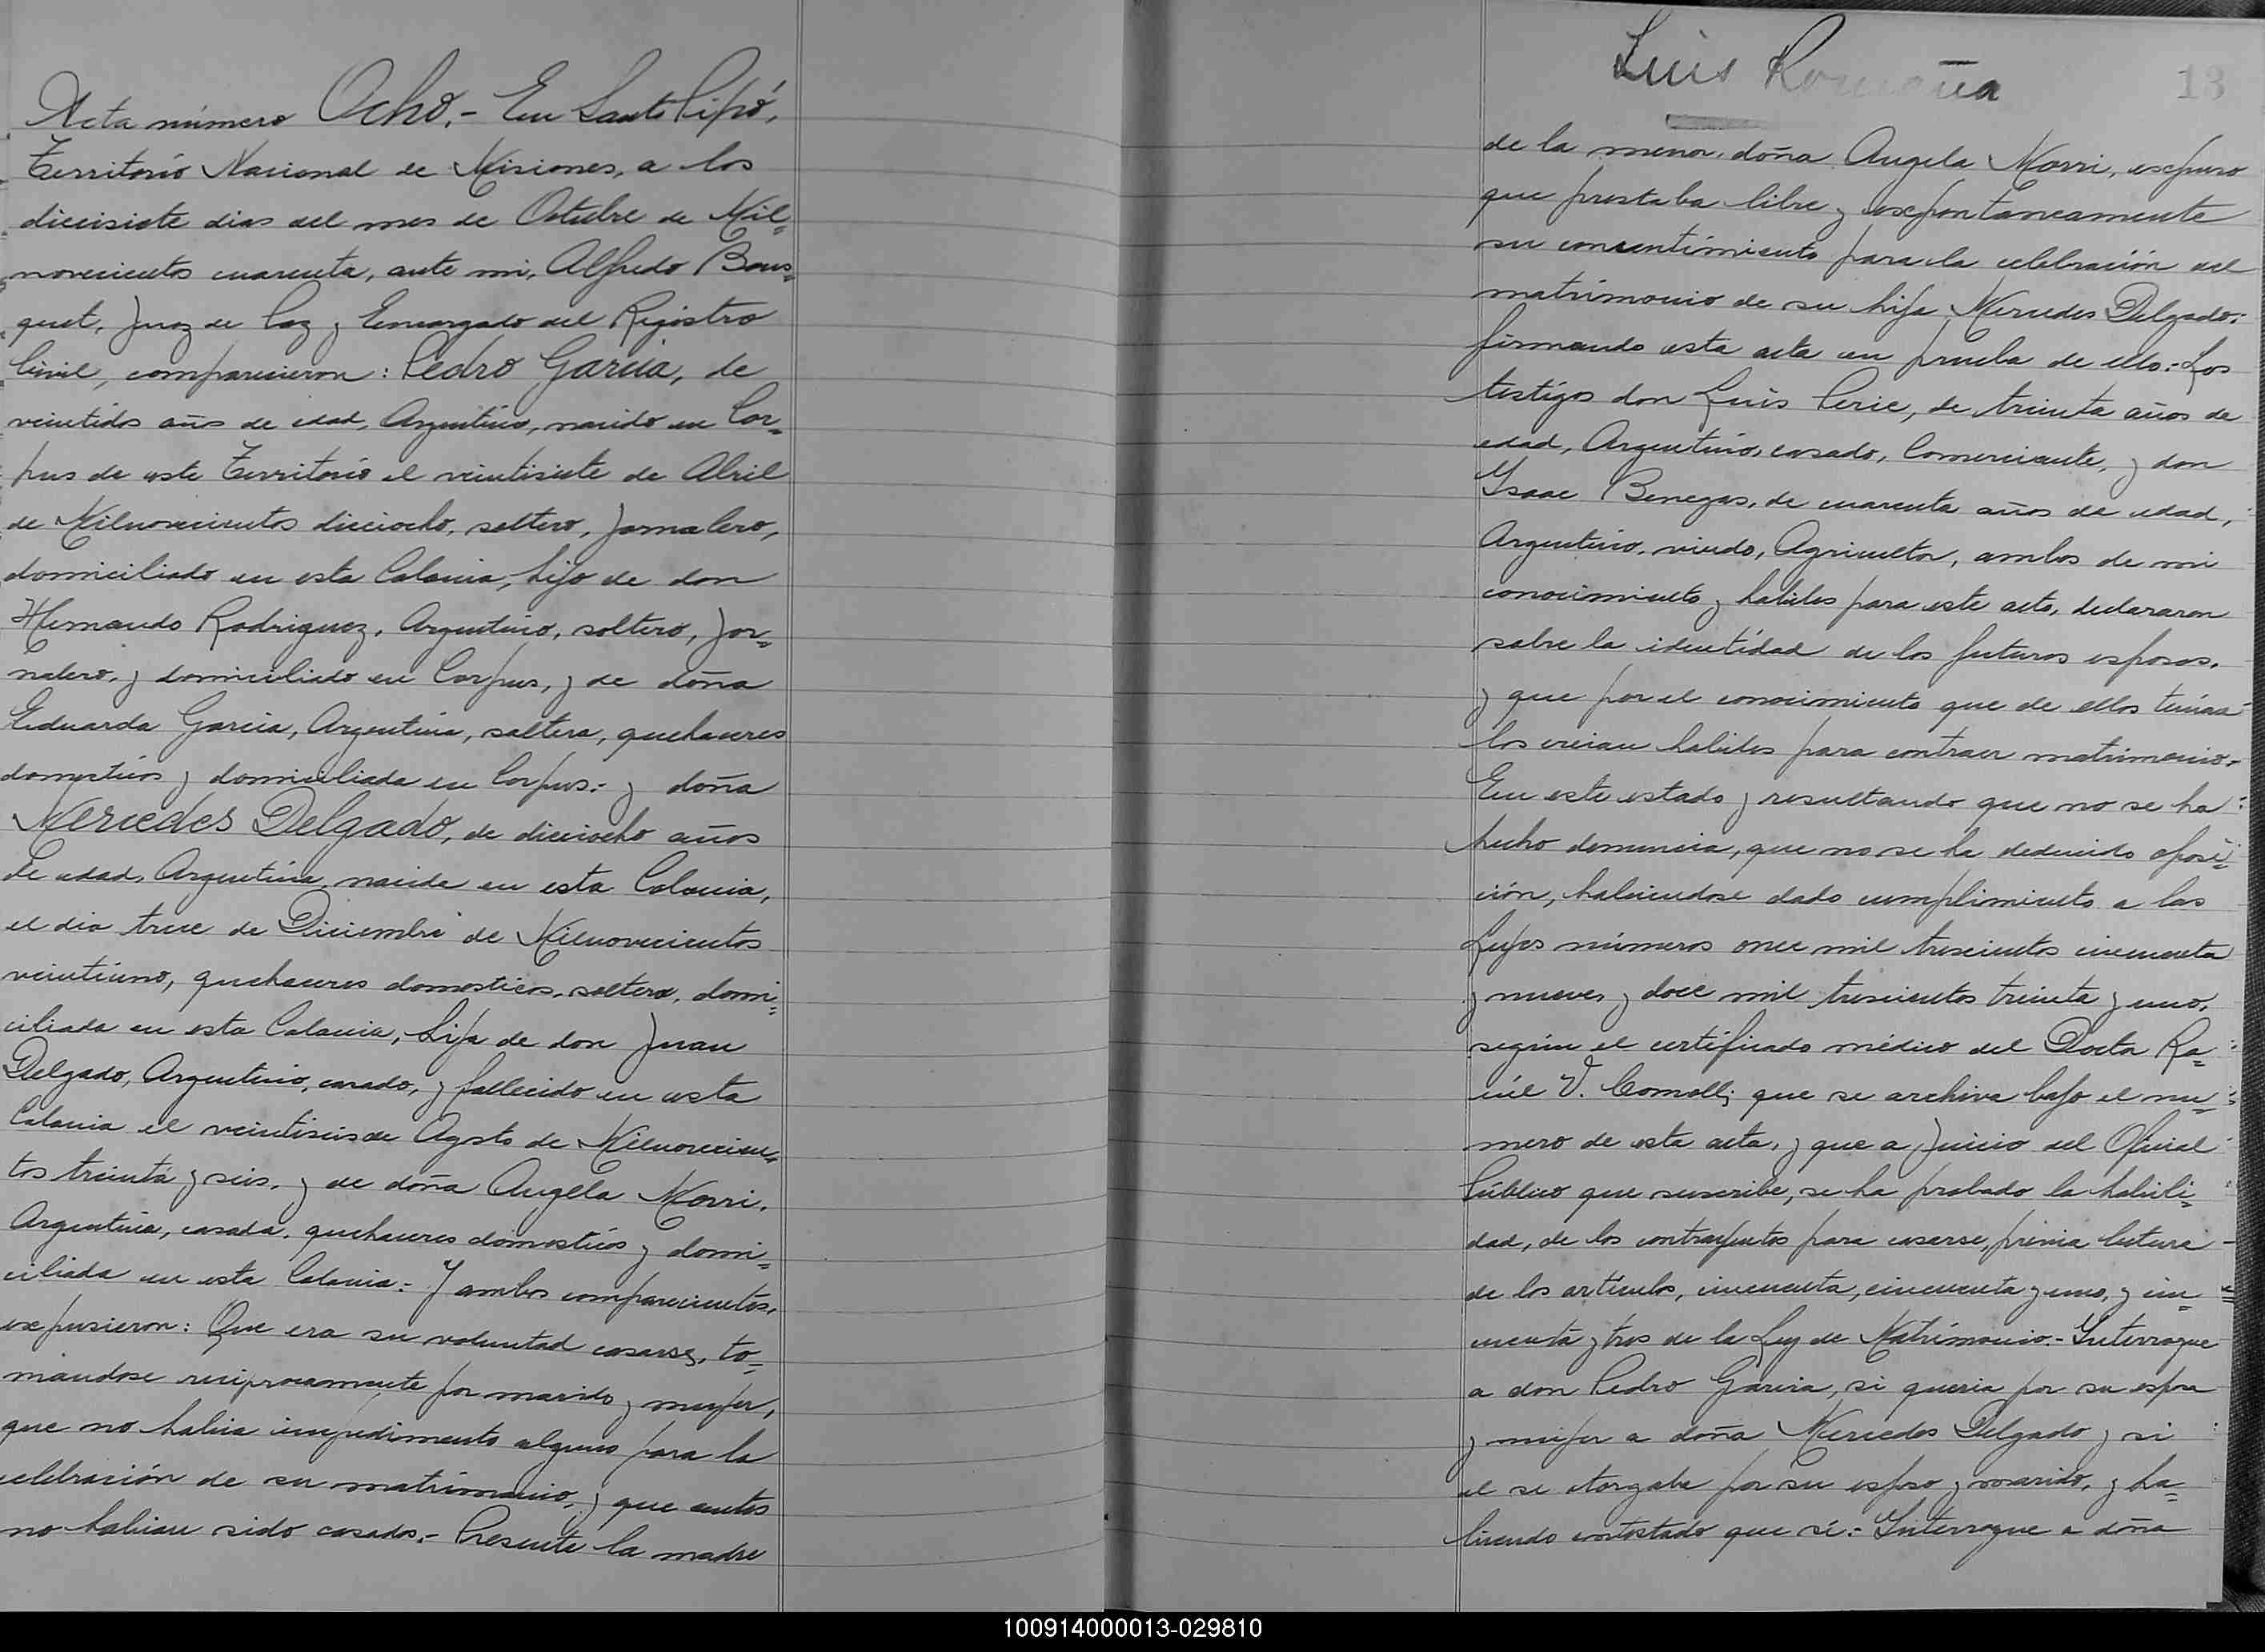 Acta número Ocho.- En Santo Pipó,
Territorio Nacional de Misiones, a los
diecisiete dias del mes de Octubre de Mil-
novecientos cuarenta, ante mi, Alfredo Bous-
quet, Juez de Paz y Encargado del Registro
Civil, comparecieron: Pedro Garcia, de
veintidos años de edad, Argentino, nacido en Cor-
pus de este Territorio el veintisiete de Abril
de Milnovecientos dieciocho, soltero, Jornalero,
domiciliado en esta Colonia, hijo de don
Hernando Rodriguez, Argentino, soltero, Jor-
nalero, y domiciliado en Corpus, y de doña
Eduarda Garcia, Argentina, soltera, quehaceres
domesticos y domiciliada en Corpus.- y doña
Mercedes Delgado, de dieciocho años
de edad, Argentina, nacida en esta Colonia,
el dia trece de Diciembre de Milnovecientos
veintiuno, quehaceres domesticos, soltera, domi-
ciliada en esta Colonia, hija de don Juan
Delgado, Argentino, casado, y fallecido en esta
Colonia el veintiseis de Agosto de Milnovecien-
tos treinta y seis, y de doña Angela Morri,
Argentina, casada, quehaceres domesticos y domi-
ciliada en esta Colonia.- Y ambos comparecientes,
expusieron: Que era su voluntad casarse, to-
mandose reciprocamente por marido y mujer,
que no habia impedimento alguno para la
celebración de su matrimonio, y que antes
no habian sido casados.- Presente la madre
Luis Romaña
13
de la menor, doña Angela Morri, expuso
que prestaba libre y expontaneamente
su consentimiento para la celebración del
matrimonio de su hija Mercedes Delgado;
firmando esta acta en prueba de ello.- Los
testigos don Luis Perie, de treinta años de
edad, Argentino, casado, Comerciante, y don
Ysaac Benegas, de cuarenta años de edad,
Argentino, viudo, Agricultor, ambos de mi
conocimiento y habiles para este acto, declararon
sobre la identidad de los futuros esposos,
y que por el conocimiento que de ellos tenian
los creian habiles para contraer matrimonio.-
En este estado y resultando que no se ha
hecho denuncia, que no se ha deducido oposi-
ción, habiendose dado cumplimiento a las
Leyes números once mil trescientos cincuenta
y nueve, y doce mil trescientos treinta y uno,
según el certificado médico del Doctor Ra-
úl V. Comolli que se archiva bajo el nu-
mero de esta acta, y que a Juicio del Oficial
Público que suscribe, se ha probado la habili-
dad, de los contrayentes para casarse, previa lectura
de los artículos, cincuenta, cincuenta y uno, y cin-
cuenta y tres de la Ley de Matrimonio.- Interrogue
a don Pedro Garcia, si queria por su esposa
y mujer a doña Mercedes Delgado y si
el se otorgaba por su esposo y marido, y ha-
biendo contestado que si.- Interrogue a doña
100914000013-029810